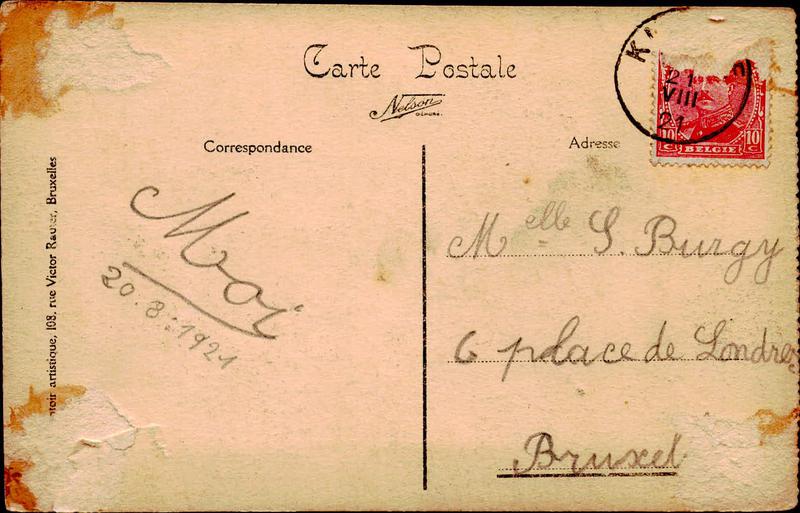 Carte Postale
Nelson
Correspondance
Adresse
21
VIII
21
10 10
C BELGIE C
Moi
20.8.1921
Melle S. Burgy
6 place de Londres
Bruxel
artistique, 108, rue Victor Bruxelles